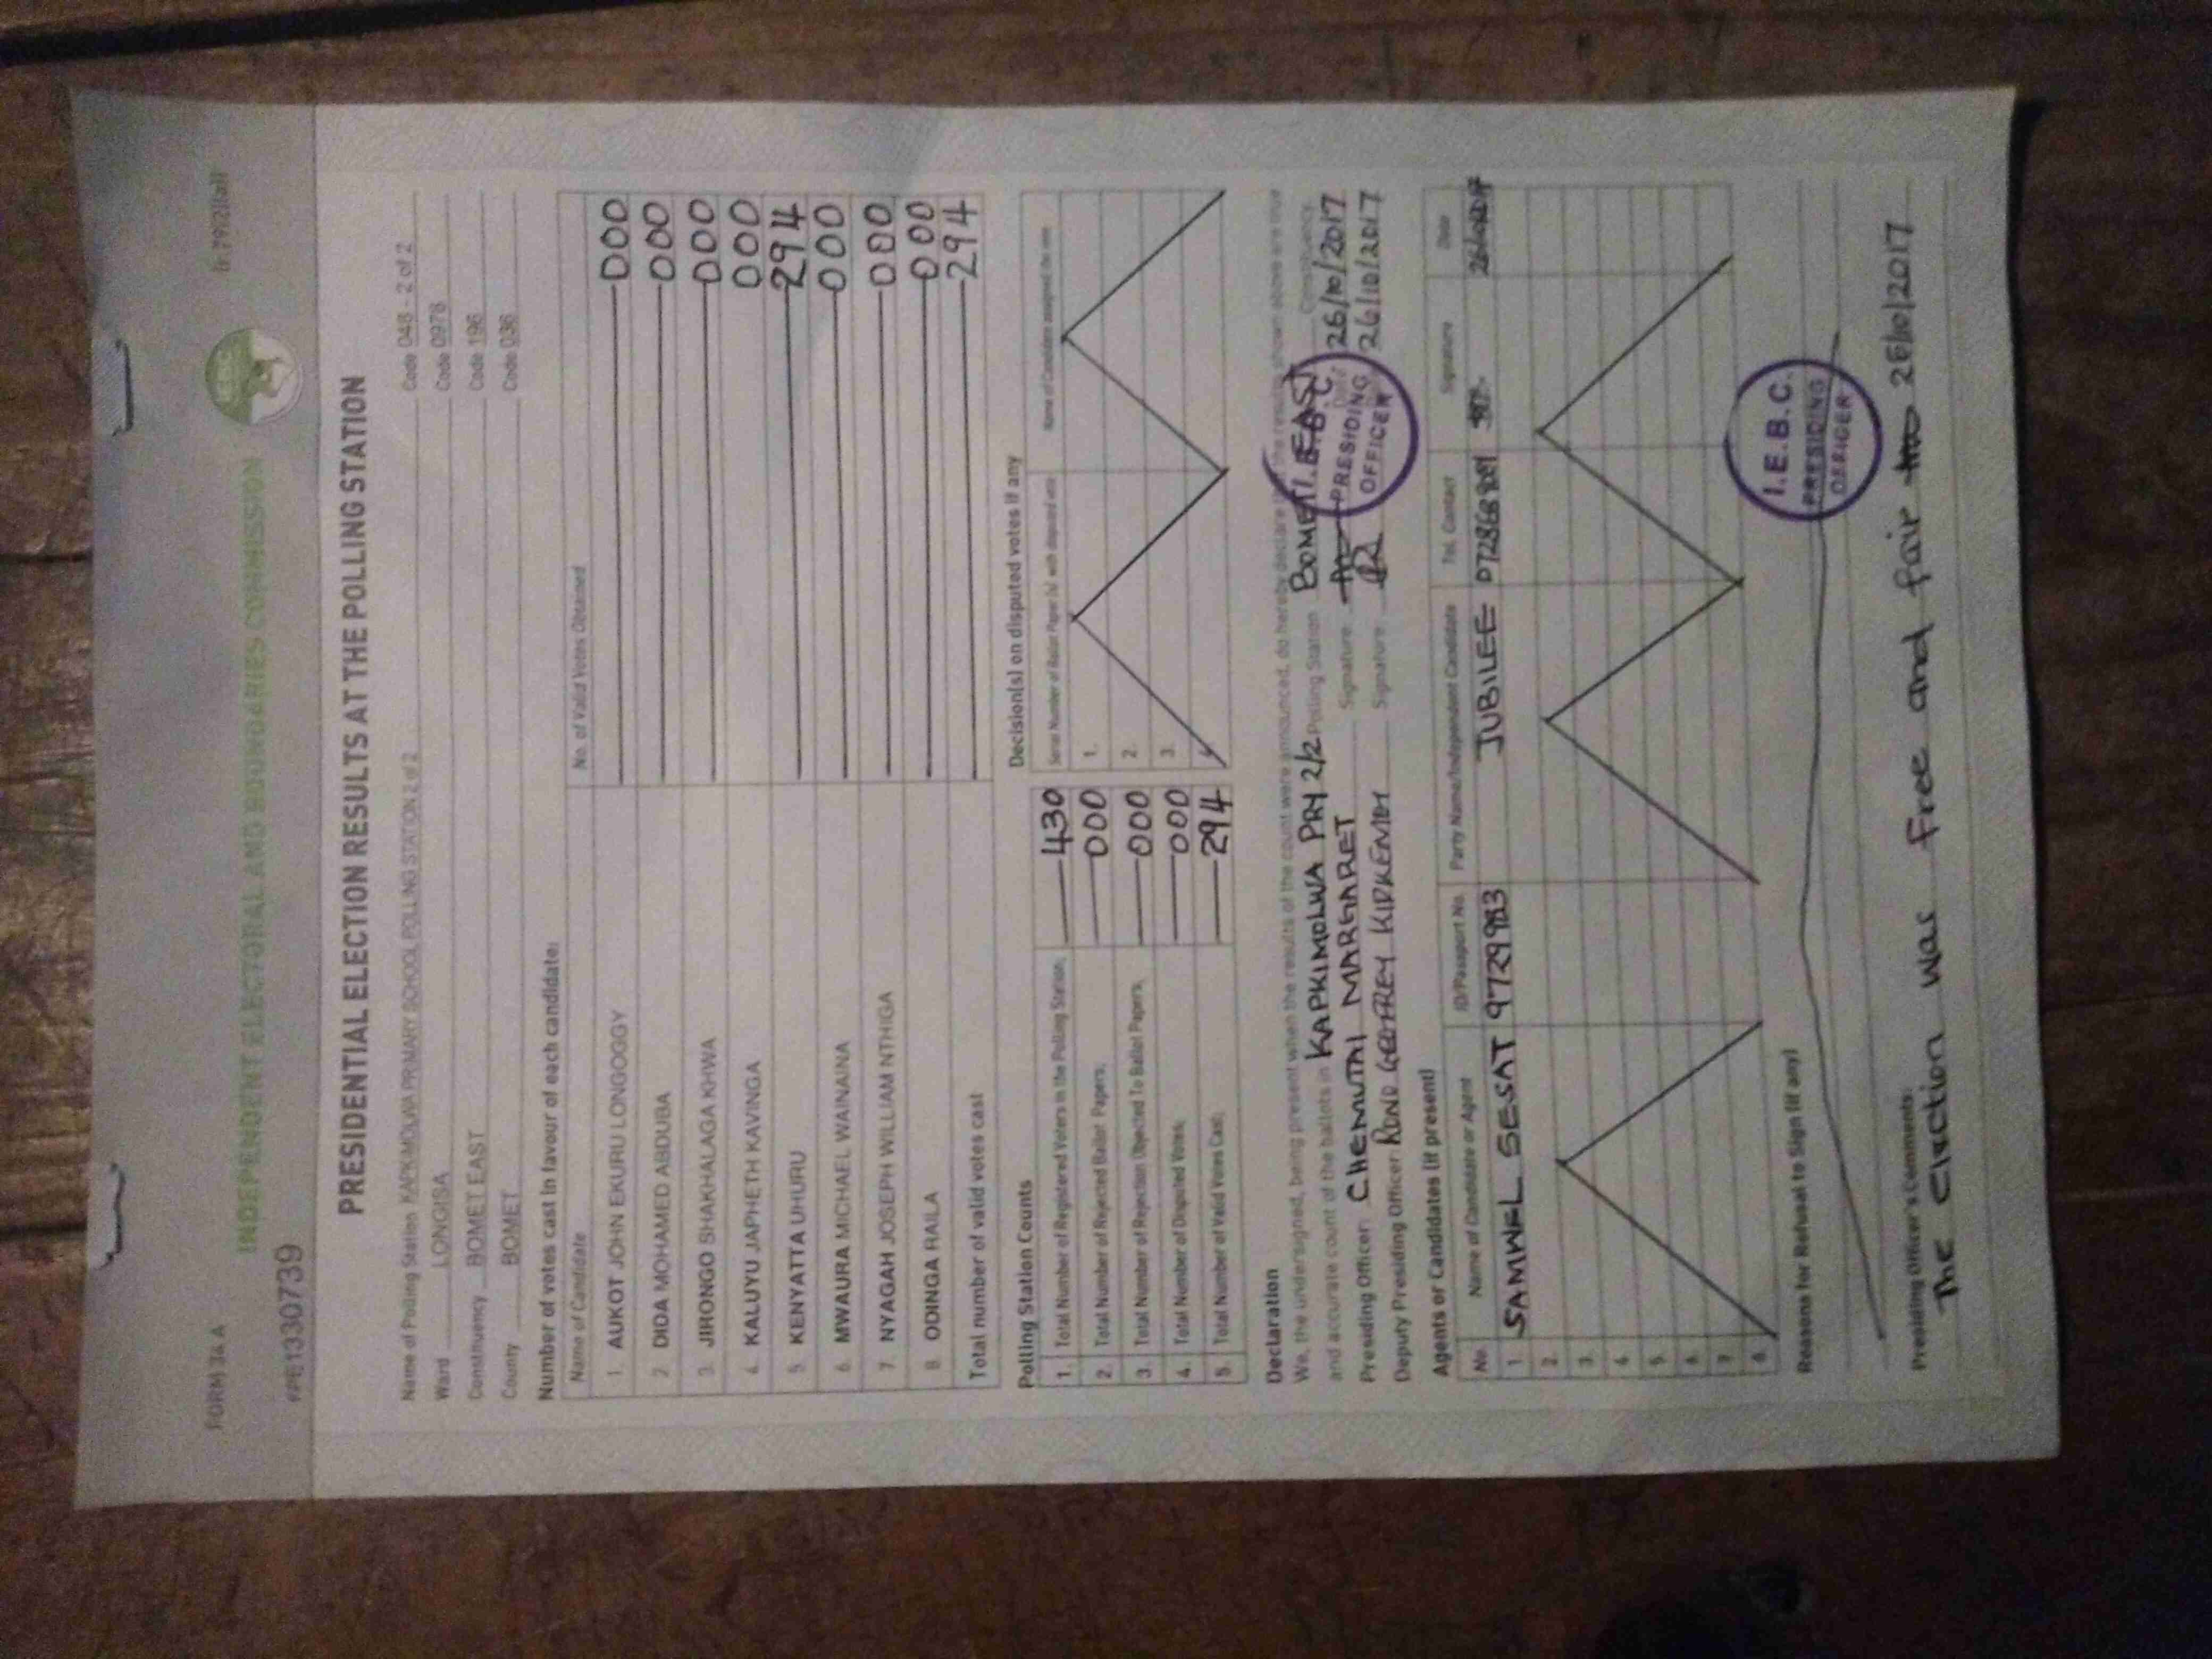 FORM 34 A
INDEPENDENT ELECTORAL AND BOUNDARIES COMMISSION
#PE13307739
PRESIDENTIAL ELECTION RESULTS AT THE POLLING STATION
Name of Polling Station KAPKIMOLWA PRIMARY SCHOOL POLLING STATION 2 of 2 Code 048 - 2 of 2
Ward LONGISA Code 0978
Constituency BOMET EAST Code 196
County BOMET Code 036
Number of votes cast in favour of each candidate:
Name of Candidate No. of Valid Votes Obtained
1. AUKOT JOHN EKURU LONGOGGY 000
2. DIDA MOHAMED ABDUBA 000
3. JIRONGO SHAKHALAGA KHWA 000
4. KALUYU JAPHETH KAVINGA 000
5. KENYATTA UHURU 294
6. MWAURA MICHAEL WAINAINA 000
7. NYAGAH JOSEPH WILLIAM NTHIGA 000
8. ODINGA RAILA 000
Total number of valid votes cast 294
Polling Station Counts
1. Total Number of Registered Voters in the Polling Station; 430
2. Total Number of Rejected Ballot Papers; 000
3. Total Number of Rejection Objected To Ballot Papers; 000
4. Total Number of Disputed Votes; 000
5. Total Number of Valid Votes Cast; 294
Decision(s) on disputed votes if any
Serial Number of Ballot Paper (s) with disputed vote Name of Candidate
1.
2.
3.
Declaration
We, the undersigned, being present when the results of the count were announced, do hereby declare that the results shown above are true
and accurate count of the ballots in KAPKIMOLWA PRY 2/2 Polling Station BOMET EAST Constituency
Presiding Officer: CHEMUTAI MARGARET Signature: 26/10/2017
Deputy Presiding Officer: RONO GEOFFREY KIPKEMOI Signature: 26/10/2017
I.E.B.C.
PRESIDING
OFFICER
Agents or Candidates (if present)
No. Name of Candidate or Agent ID/Passport No. Party Name/Independent Candidate Tel. Contact Signature Date
1. SAMWEL SESAT 9729983 JUBILEE
2.
3.
4.
5.
6.
7.
8.
Reasons for Refusal to Sign (if any)
I.E.B.C.
PRESIDING
OFFICER
Presiding Officer's Comments:
The Election was Free and fair 26/10/2017